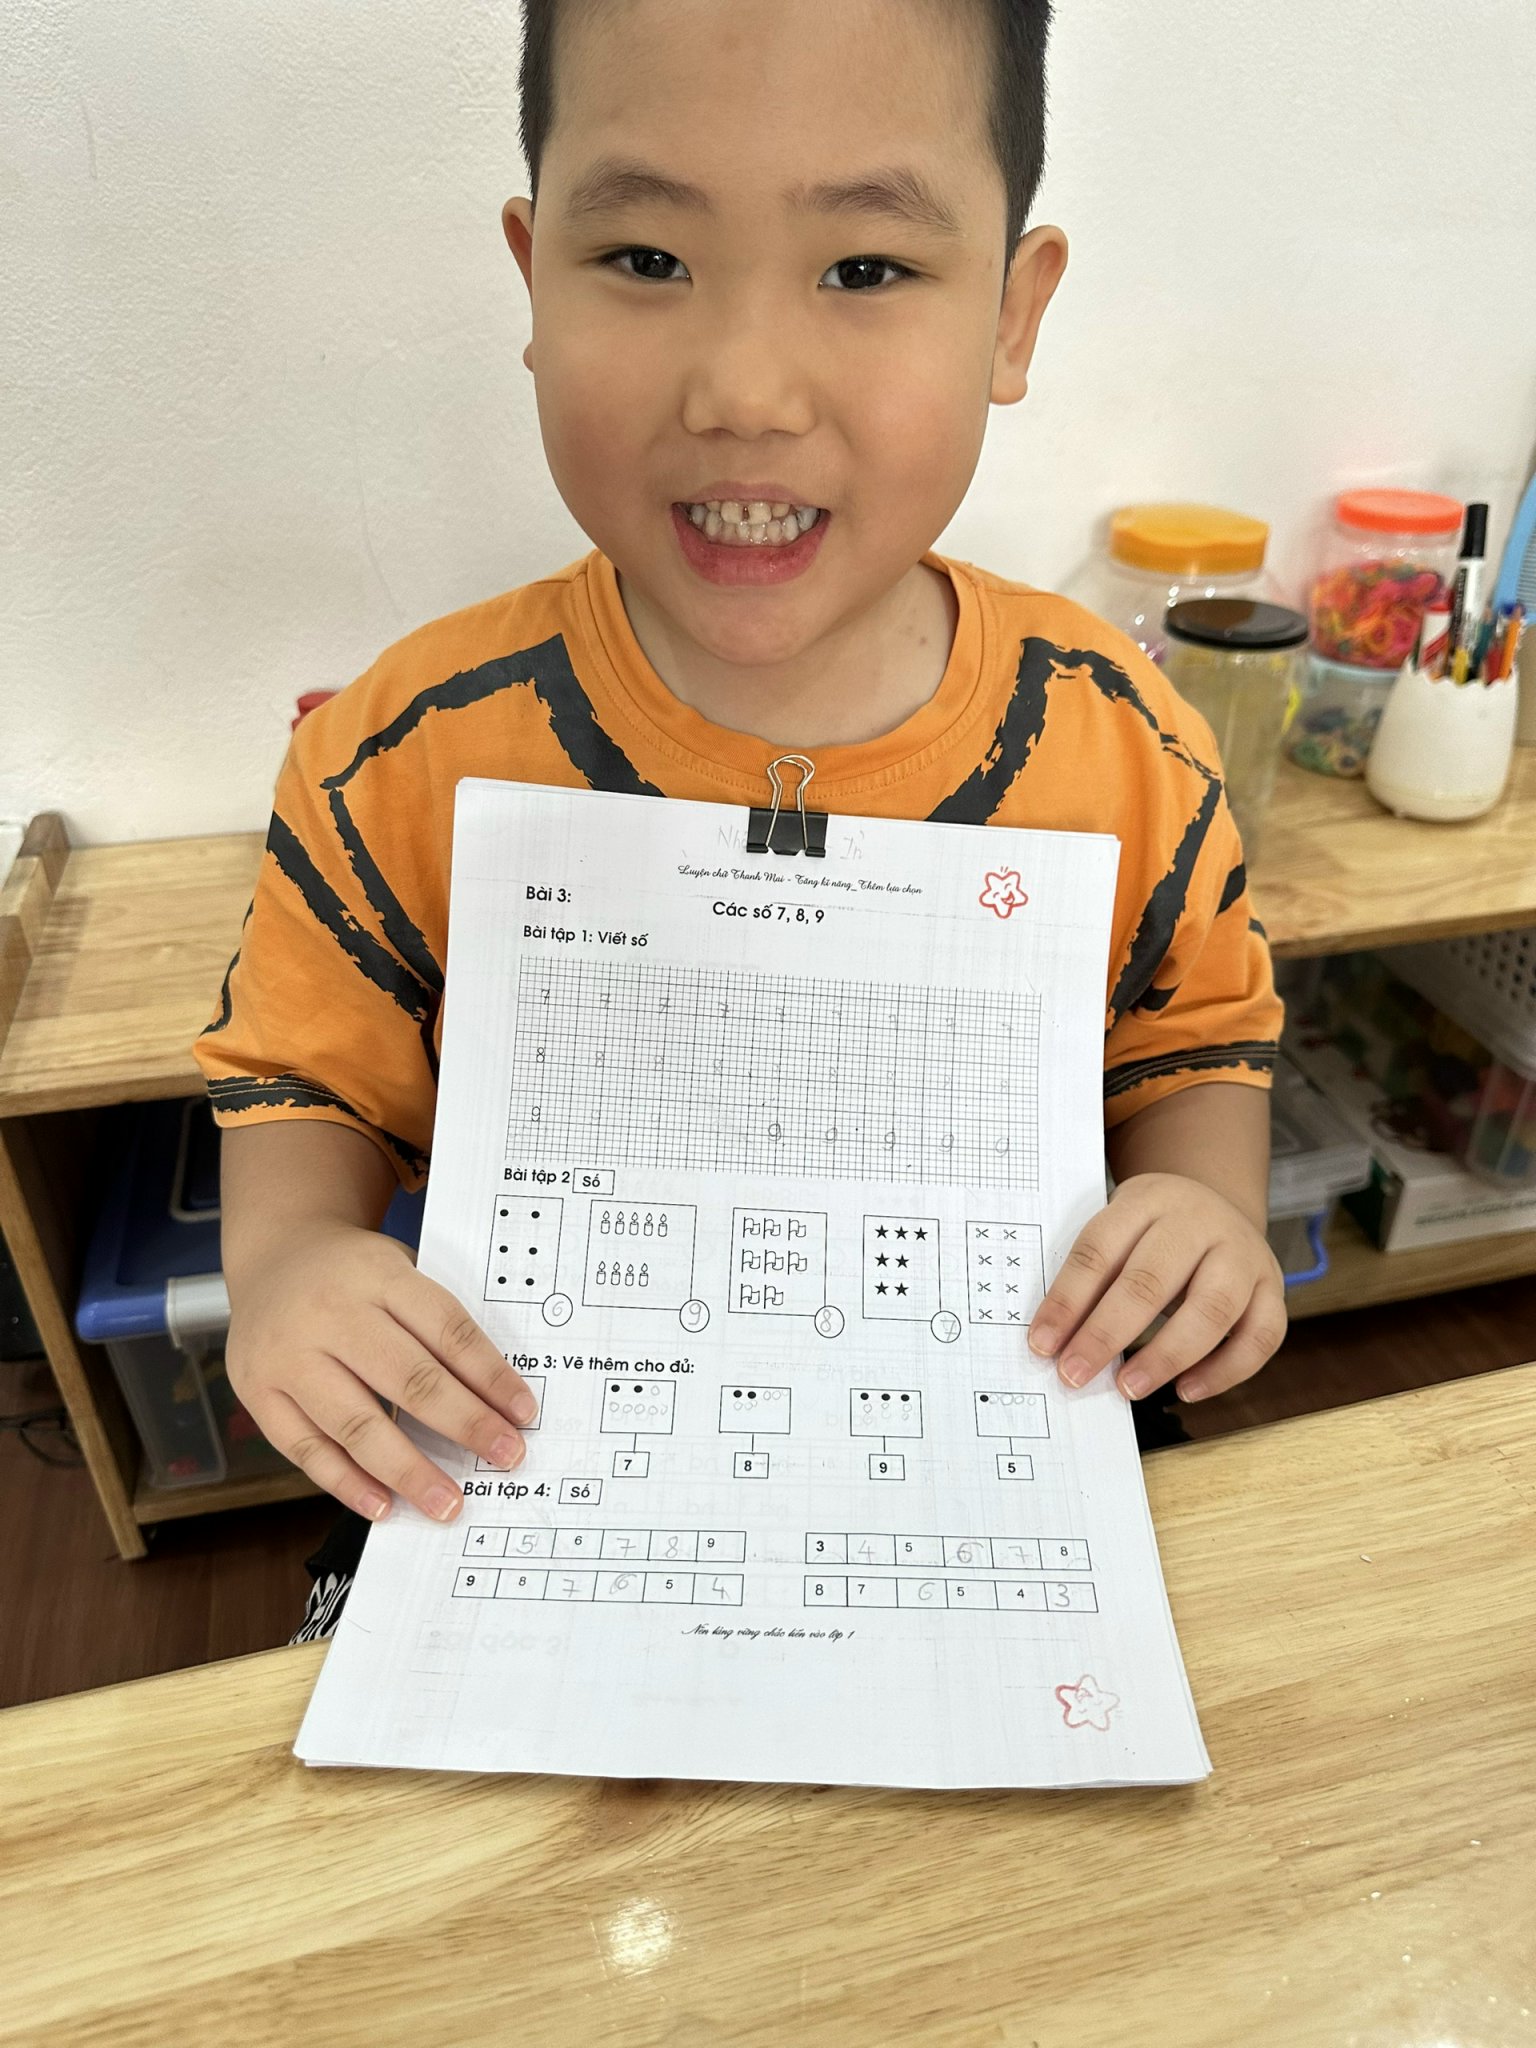 Nh In
Luyện chữ Thanh Mai - Tăng kĩ năng_Thêm lựa chọn
Bài 3:
Các số 7, 8, 9
Bài tập 1: Viết số
7 7 7 7 7 7 7 7 7
8 8 8 8 8 8 8 8
9 9 9 9 9 9
Bài tập 2 Số
6 9 8 7
i tập 3: Vẽ thêm cho đủ:
7 8 9 5
Bài tập 4: Số
4 5 6 7 8 9 3 4 5 6 7 8
9 8 7 6 5 4 8 7 6 5 4 3
Nền tảng vững chắc tiến vào lớp 1